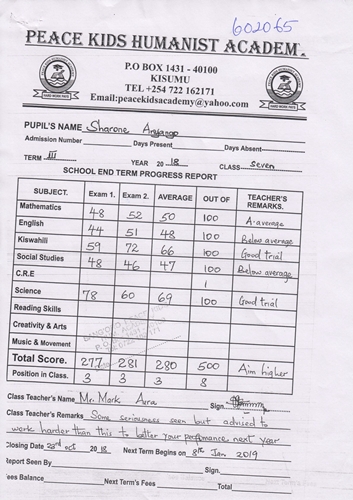 602065
PEACE KIDS HUMANIST ACADEM.
P.O BOX 1431 - 40100
KISUMU
TEL +254 722 162171
Email:peacekidsacademy@yahoo.com
PUPIL'S NAME Sharone Anyango
Admission Number Days Present Days Absent
TERM III YEAR 2018 CLASS Seven
SCHOOL END TERM PROGRESS REPORT
SUBJECT. Exam 1. Exam 2. AVERAGE OUT OF TEACHER'S REMARKS.
Mathematics 48 52 50 100 A-average
English 44 51 48 100 Below average
Kiswahili 59 72 66 100 Good trial
Social Studies 48 46 47 100 Below average
C.R.E
Science 78 60 69 100 Good trial
Reading Skills
Creativity & Arts
Music & Movement
Total Score. 277 281 280 500 Aim higher
Position in Class. 3 3 3 8
Class Teacher's Name Mr. Mark Aura Sign.
Class Teacher's Remarks Some seriousness seen but advised to
work harder than this to better your performance next year
Closing Date 23rd oct 2018 Next Term Begins on 8th Jan 2019
Report Seen By Sign.
Fees Balance Next Term's Fees Total